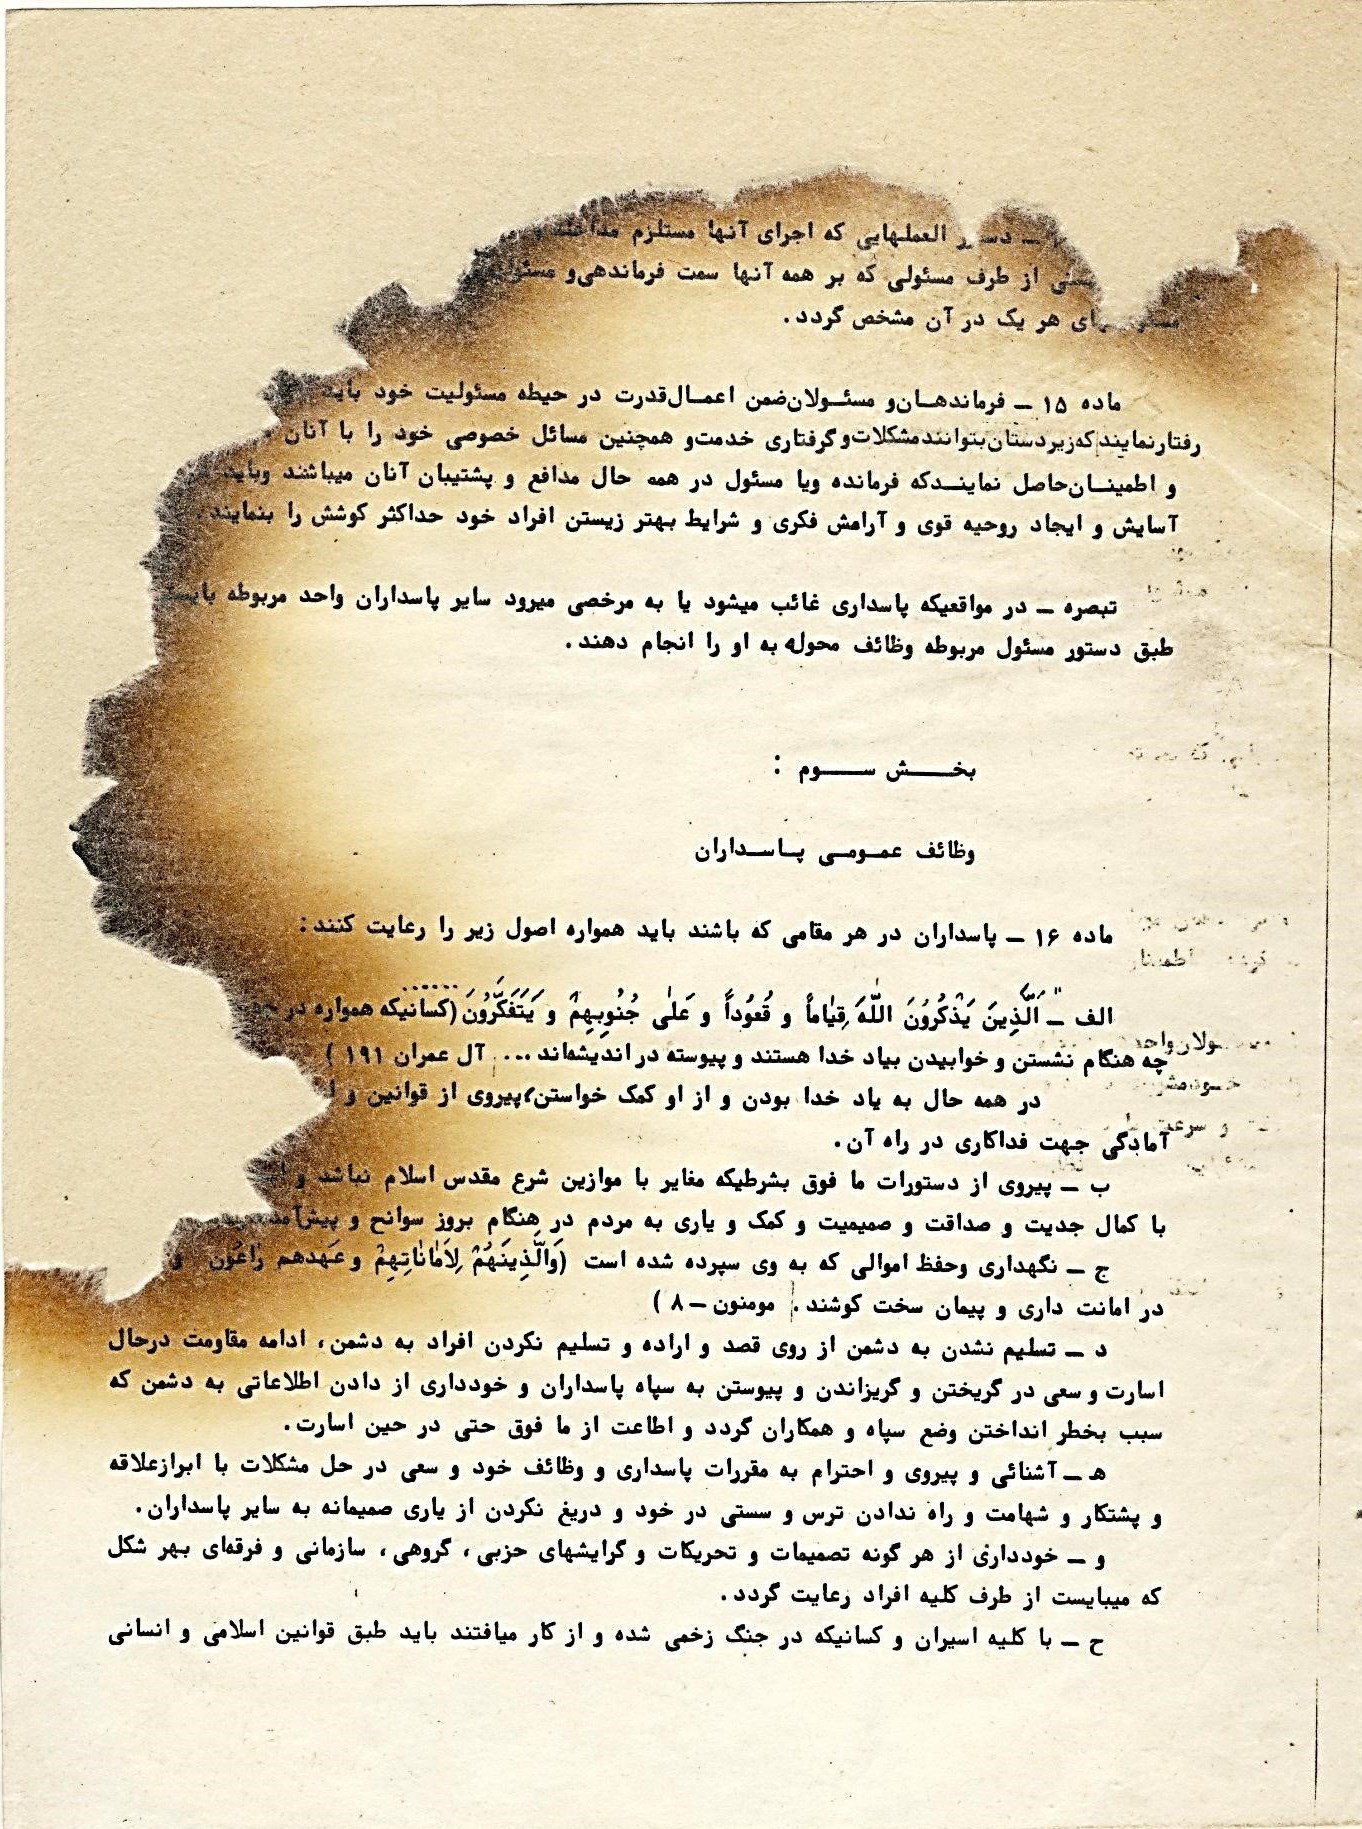 ـ دستور العملهایی که اجرای آنها مستلزم
از طرف مسئولی که بر همه آنها سمت فرماندهی و
هر یک در آن مشخص گردد.
ماده ۱۵ ـ فرماندهـان و مسئـولان ضمن اعمـال قدرت در حیطه مسئولیت خود باید
رفتار نمایند که زیر دستان بتوانند مشکلات و گرفتاری خدمت و همچنین مسائل خصوصی خود را با آنان
و اطمینـان حاصل نماینـد که فرمانده ویا مسئول در همه حال مدافع و پشتیبان آنان میباشند وباید
آسایش و ایجاد روحیه قوی و آرامش فکری و شرایط بهتر زیستن افراد خود حداکثر کوشش را بنمایند.
تبصره ـ در مواقعیکه پاسداری غائب میشود یا به مرخصی میرود سایر پاسداران واحد مربوطه
طبق دستور مسئول مربوطه وظائف محوله به او را انجام دهند.
بخـــش ســـوم :
وظائف عمـومـی پـاسـداران
ماده ۱۶ ـ پاسداران در هر مقامی که باشند باید همواره اصول زیر را رعایت کنند:
الف ـ "اَلَّذِینَ یَذْکُرُونَ اللّٰهَ قِیٰاماً و قُعُوداً و عَلٰی جُنُوبِهِمْ و یَتَفَکَّرُونَ...... (کسانیکه همواره در
چه هنگام نشستن و خوابیدن بیاد خدا هستند و پیوسته در اندیشه‌اند ... آل عمران ۱۹۱ )
در همه حال به یاد خدا بودن و از او کمک خواستن، پیروی از قوانین و
آمادگی جهت فداکاری در راه آن.
ب ـ پیروی از دستورات ما فوق بشرطیکه مغایر با موازین شرع مقدس اسلام نباشد و
با کمال جدیت و صداقت و صمیمیت و کمک و یاری به مردم در هنگام بروز سوانح و
ج ـ نگهداری وحفظ اموالی که به وی سپرده شده است (وَالَّذِینَهُمْ لِاَمٰانٰاتِهِمْ و عَهدهم رٰاعُون و
در امانت داری و پیمان سخت کوشند. مومنون ـ ۸ )
د ـ تسلیم نشدن به دشمن از روی قصد و اراده و تسلیم نکردن افراد به دشمن، ادامه مقاومت درحال
اسارت و سعی در گریختن و گریزاندن و پیوستن به سپاه پاسداران و خودداری از دادن اطلاعاتی به دشمن که
سبب بخطر انداختن وضع سپاه و همکاران گردد و اطاعت از ما فوق حتی در حین اسارت.
هـ ـ آشنائی و پیروی و احترام به مقررات پاسداری و وظائف خود و سعی در حل مشکلات با ابرازعلاقه
و پشتکار و شهامت و راه ندادن ترس و سستی در خود و دریغ نکردن از یاری صمیمانه به سایر پاسداران.
و ـ خودداری از هر گونه تصمیمات و تحریکات و گرایشهای حزبی، گروهی، سازمانی و فرقه‌ای بهر شکل
که میبایست از طرف کلیه افراد رعایت گردد.
ح ـ با کلیه اسیران و کسانیکه در جنگ زخمی شده و از کار میافتند باید طبق قوانین اسلامی و انسانی